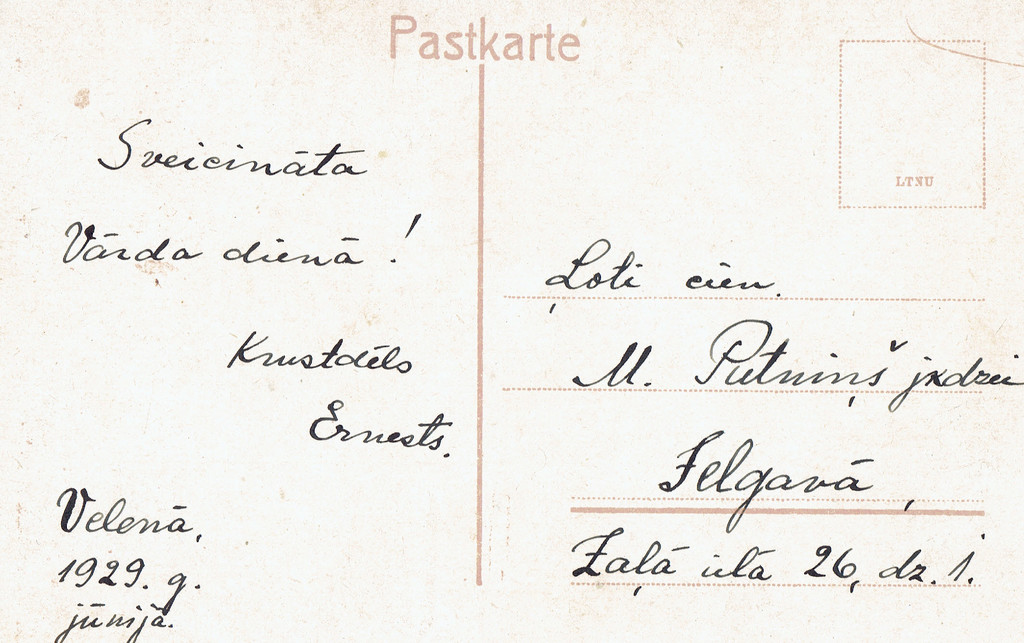 Pastkarte
Sveicināta
Vārda dienā!
Krustdēls
Ernests.
Velenā,
1929. g.
jūnijā.
LTNU
Ļoti cien.
M. Putniņš jkdzei
Jelgavā,
Zaļā ielā 26, dz. 1.